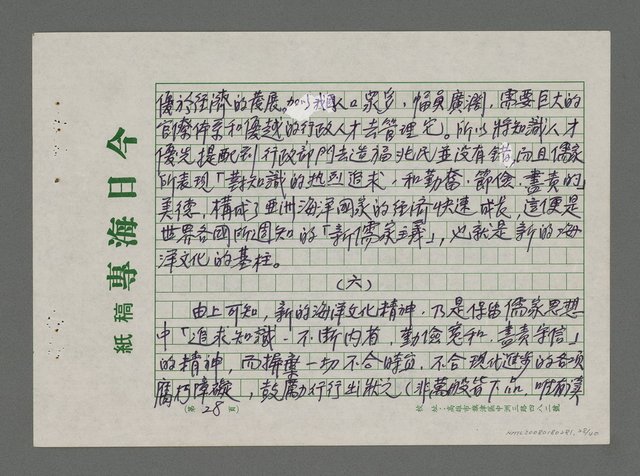 今日海專稿紙
優於經濟的發展。加以我國人口眾多，幅員廣濶，需要巨大的
官僚体系和優越的行政人才去管理它。所以將知識人才
優先提配到行政部門去造福兆民並沒有錯，而且儒家
所表現「對知識的熱烈追求，和勤奮、節儉、盡責的」
美德，構成了亞洲海洋國家的經濟快速成長，這便是
世界各國所週知的「新儒家主義」，也就是新的海
洋文化的基柱。
（六）
由上可知，新的海洋文化精神，乃是保留儒家思想
中「追求知識、不斷內省，勤儉寬和、盡責守信」
的精神，而摒棄一切不合時宜，不合現代進步的各項
腐朽障礙，鼓勵行行出狀元（非萬般皆下品，唯有漢
（第28頁）
校址：高雄市旗津區中洲三路四八二號
NMTL20080180281 28/40